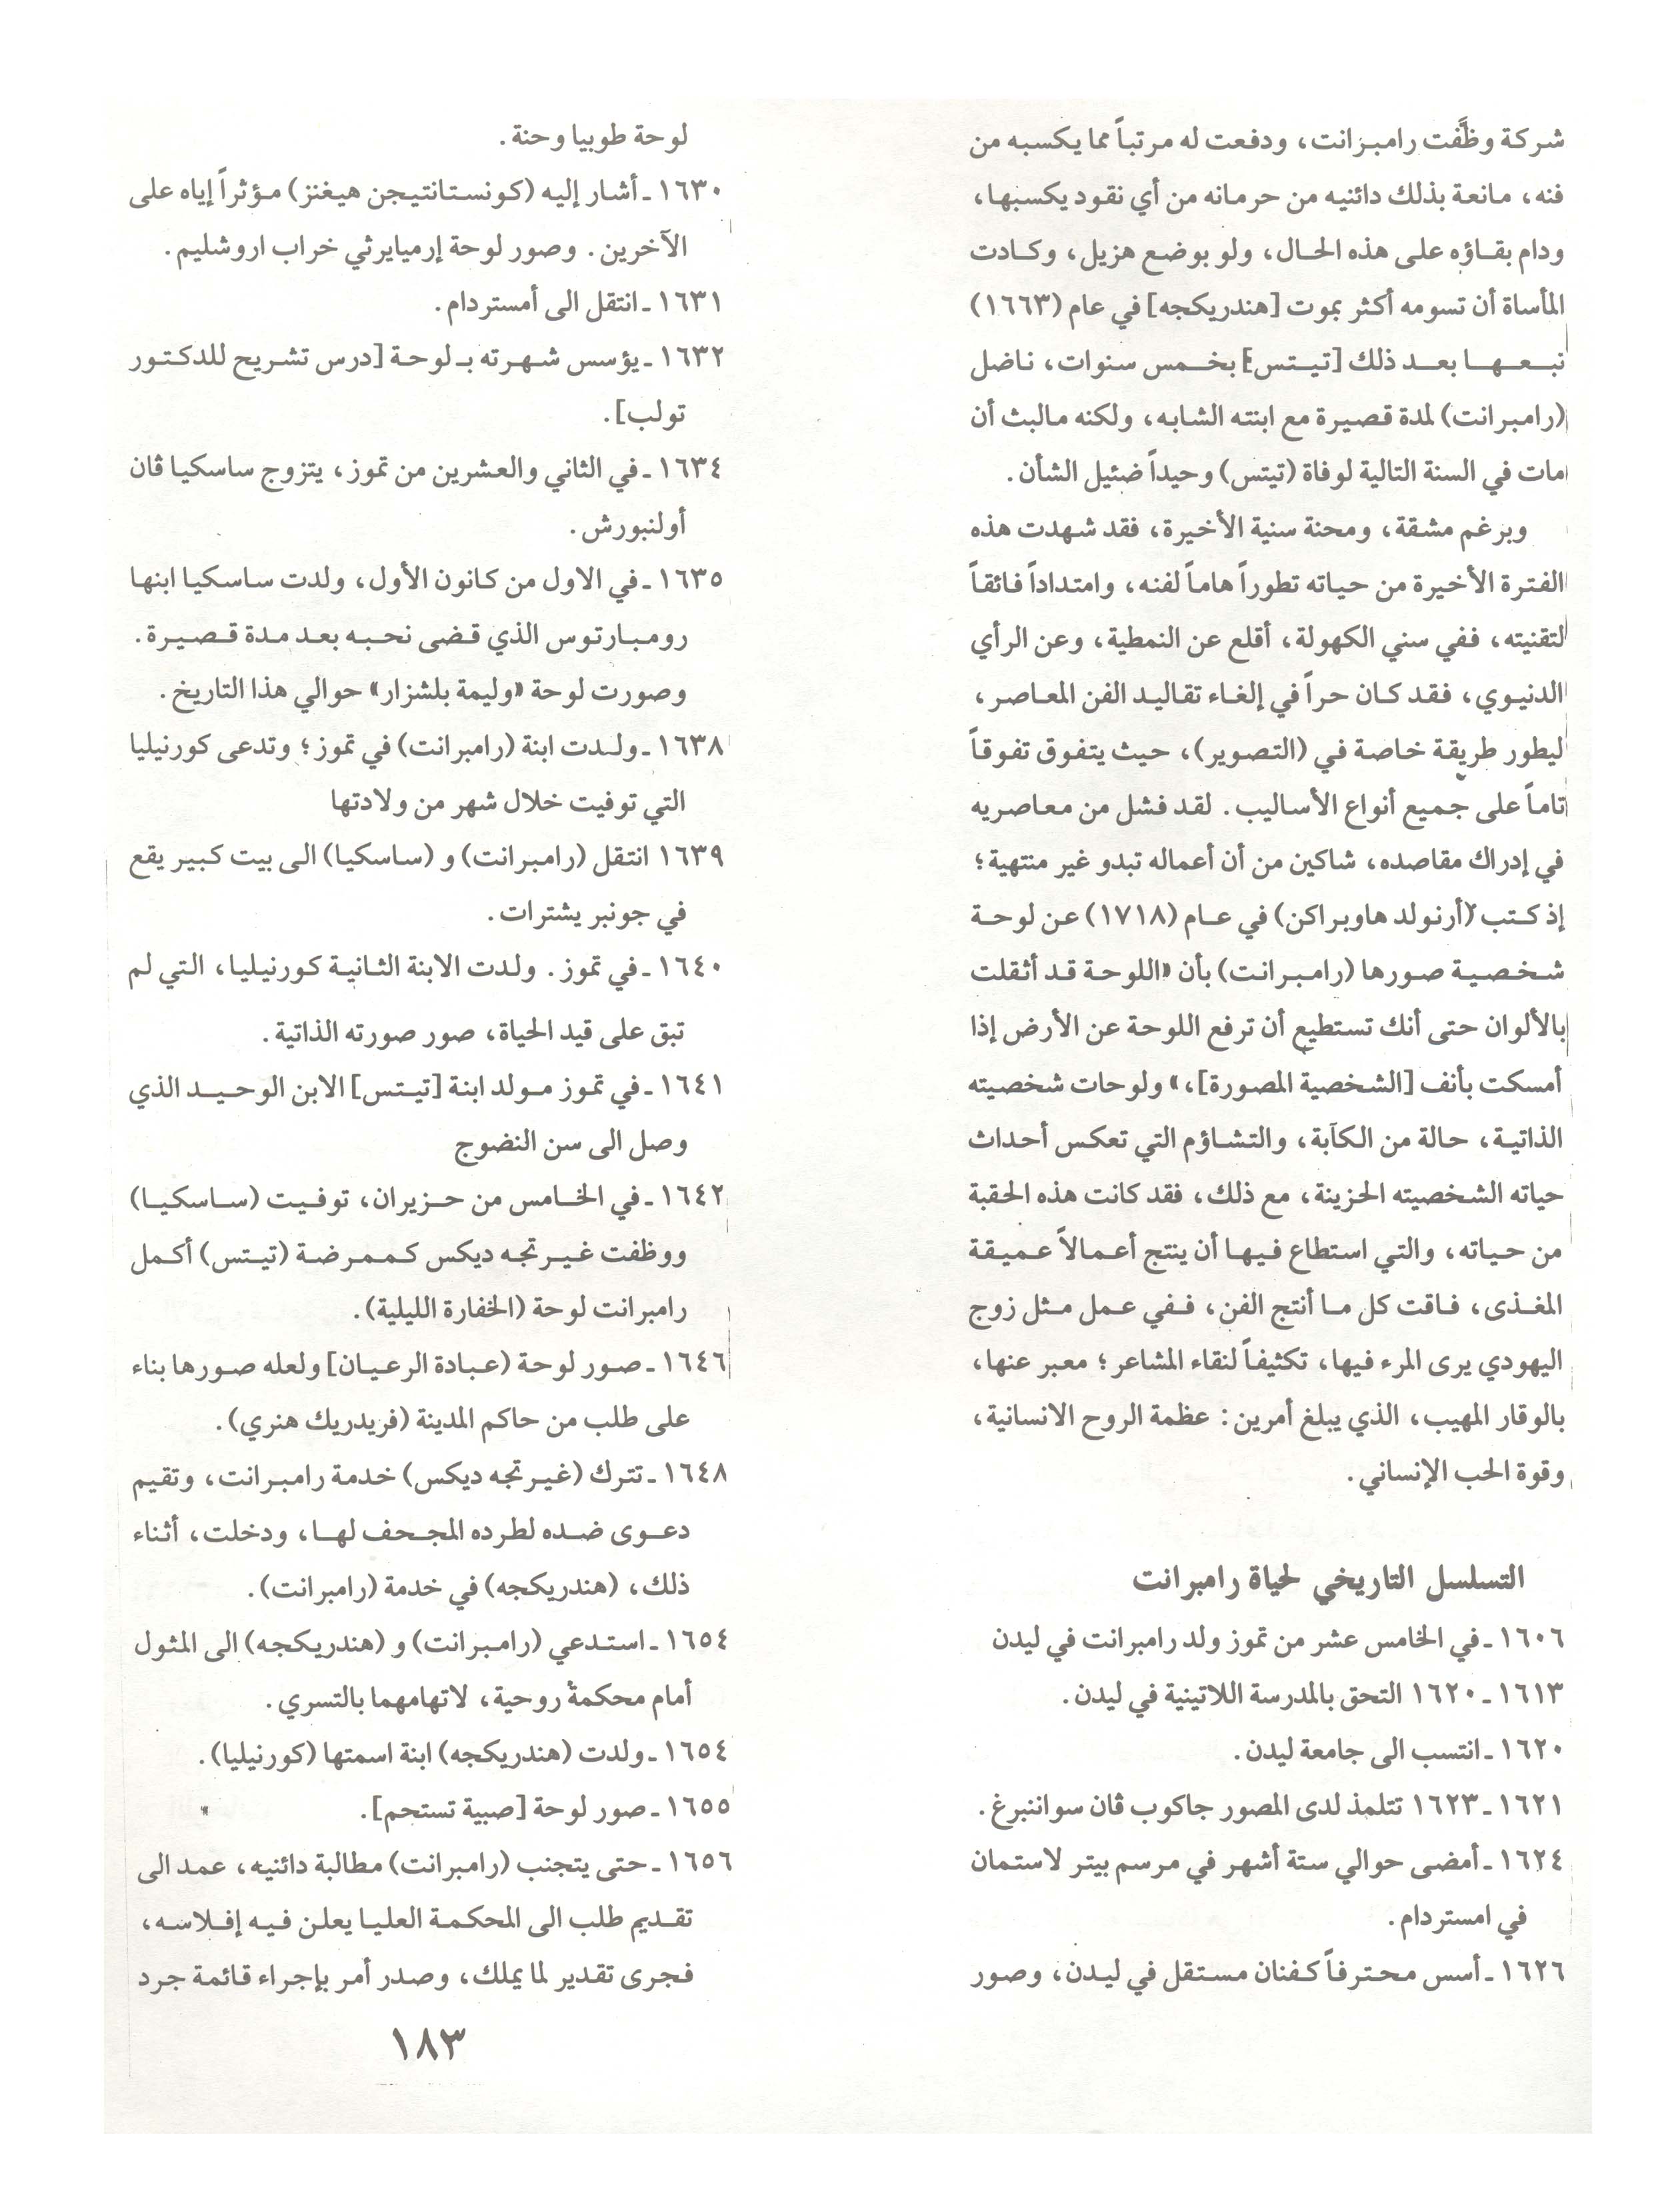 شركة وظَّفت رامبرانت، ودفعت له مرتباً مما يكسبه من
فنه، مانعة بذلك دائنيه من حرمانه من أي نقود يكسبها،
ودام بقاؤه على هذه الحال، ولو بوضع هزيل، وكادت
المأساة أن تسومه أكثر بموت [هندريكجه] في عام (١٦٦٣)
تبعها بعد ذلك [تيتس] بخمس سنوات، ناضل
(رامبرانت) لمدة قصيرة مع ابنته الشابه، ولكنه مالبث أن
مات في السنة التالية لوفاة (تيتس) وحيداً ضئيل الشأن.
وبرغم مشقة، ومحنة سنية الأخيرة، فقد شهدت هذه
الفترة الأخيرة من حياته تطوراً هاماً لفنه، وامتداداً فائقاً
لتقنيته، ففي سني الكهولة، أقلع عن النمطية، وعن الرأي
الدنيوي، فقد كان حراً في إلغاء تقاليد الفن المعاصر،
ليطور طريقة خاصة في (التصوير)، حيث يتفوق تفوقاً
تاماً على جميع أنواع الأساليب. لقد فشل من معاصريه
في إدراك مقاصده، شاكين من أن أعماله تبدو غير منتهية؛
إذ كتب (أرنولد هاوبراكن) في عام (١٧١٨) عن لوحة
شخصية صورها (رامبرانت) بأن «اللوحة قد أثقلت
بالألوان حتى أنك تستطيع أن ترفع اللوحة عن الأرض إذا
أمسكت بأنف [الشخصية المصورة]،» ولوحات شخصيته
الذاتية، حالة من الكآبة، والتشاؤم التي تعكس أحداث
حياته الشخصيته الحزينة، مع ذلك، فقد كانت هذه الحقبة
من حياته، والتي استطاع فيها أن ينتج أعمالاً عميقة
المغذى، فاقت كل ما أنتج الفن، ففي عمل مثل زوج
اليهودي يرى المرء فيها، تكثيفاً لنقاء المشاعر؛ معبر عنها،
بالوقار المهيب، الذي يبلغ أمرين: عظمة الروح الانسانية،
وقوة الحب الإنساني.
التسلسل التاريخي لحياة رامبرانت
١٦٠٦ - في الخامس عشر من تموز ولد رامبرانت في ليدن
١٦١٣ - ١٦٢٠ التحق بالمدرسة اللاتينية في ليدن.
١٦٢٠ - انتسب الى جامعة ليدن.
١٦٢١ - ١٦٢٣ تتلمذ لدى المصور جاكوب ڤان سواننبرغ.
١٦٢٤ - أمضى حوالي ستة أشهر في مرسم بيتر لاستمان
في امستردام.
١٦٢٦ - أسس محترفاً كفنان مستقل في ليدن، وصور
لوحة طوبيا وحنة.
١٦٣٠ - أشار إليه (كونستانتيجن هيغنز) مؤثراً إياه على
الآخرين. وصور لوحة إرميايرثي خراب اروشليم.
١٦٣١ - انتقل الى أمستردام.
١٦٣٢ - يؤسس شهرته بـ لوحة [درس تشريح للدكتور
تولب].
١٦٣٤ - في الثاني والعشرين من تموز، يتزوج ساسكيا ڤان
أولنبورش.
١٦٣٥ - في الاول من كانون الأول، ولدت ساسكيا ابنها
رومبارتوس الذي قضى نحبه بعد مدة قصيرة.
وصورت لوحة «وليمة بلشزار» حوالي هذا التاريخ.
١٦٣٨ - ولدت ابنة (رامبرانت) في تموز؛ وتدعى كورنيليا
التي توفيت خلال شهر من ولادتها
١٦٣٩ انتقل (رامبرانت) و (ساسكيا) الى بيت كبير يقع
في جونبر يشترات.
١٦٤٠ - في تموز. ولدت الابنة الثانية كورنيليا، التي لم
تبق على قيد الحياة، صور صورته الذاتية.
١٦٤١ - في تموز مولد ابنة [تيتس] الابن الوحيد الذي
وصل الى سن النضوج
١٦٤٢ - في الخامس من حزيران، توفيت (ساسكيا)
ووظفت غيرتجه ديكس كممرضة (تيتس) أكمل
رامبرانت لوحة (الخفارة الليلية).
١٦٤٦ - صور لوحة (عبادة الرعيان] ولعله صورها بناء
على طلب من حاكم المدينة (فريدريك هنري).
١٦٤٨ - تترك (غيرتجه ديكس) خدمة رامبرانت، وتقيم
دعوى ضده لطرده المجحف لها، ودخلت، أثناء
ذلك، (هندريكجه) في خدمة (رامبرانت).
١٦٥٤ - استدعي (رامبرانت) و (هندريكجه) الى المثول
أمام محكمة روحية، لاتهامهما بالتسري.
١٦٥٤ - ولدت (هندريكجه) ابنة اسمتها (كورنيليا).
١٦٥٥ - صور لوحة [صبية تستحم].
١٦٥٦ - حتى يتجنب (رامبرانت) مطالبة دائنيه، عمد الى
تقديم طلب الى المحكمة العليا يعلن فيه إفلاسه،
فجرى تقدير لما يملك، وصدر أمر بإجراء قائمة جرد
١٨٣